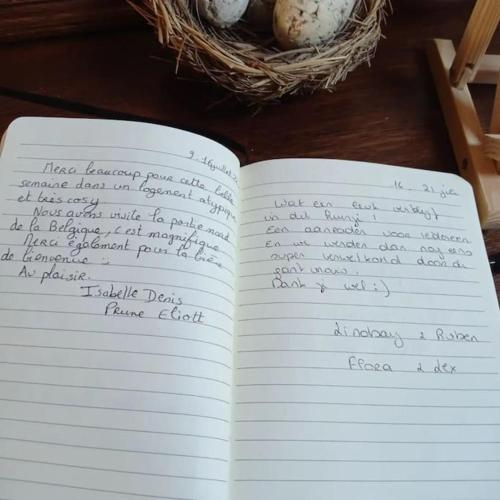 9 - 16 juillet
Merci beaucoup pour cette belle
semaine dans un logement atypique
et très cosy
Nous avons visité la partie nord
de la Belgique, c'est magnifique
Merci également pour la bière
de bienvenue :
Au plaisir.
Isabelle Denis
Prune Eliott
16 - 21 juli
Wat een leuk verblijf
in dit
Een aanrader voor iedereen
En we werden dan nog eens
super verwelkomd door de
gastvrouw.
Dank je wel :)
Lindsay & Ruben
Flora & Lex